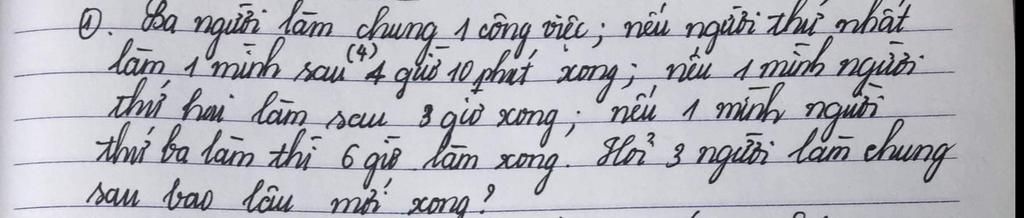 ①. Ba người làm chung 1 công việc; nếu người thứ nhất
làm 1 mình sau (4) 4 giờ 10 phút xong; nếu 1 mình người
thứ hai làm sau 3 giờ xong; nếu 1 mình người
thứ ba làm thì 6 giờ làm xong. Hỏi 3 người làm chung
sau bao lâu mới xong?